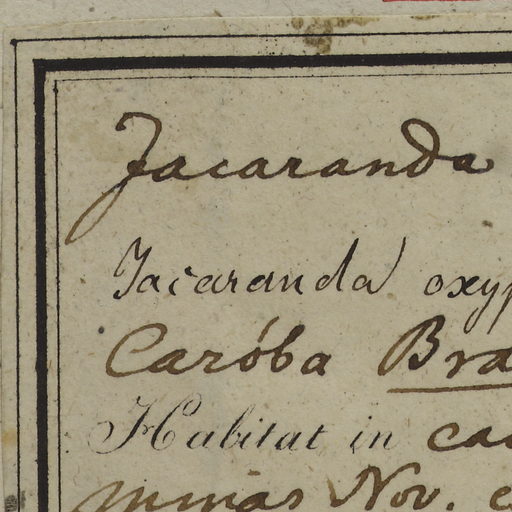 Jacaranda
Jacaranda oxyp
Caróba Bra
Habitat in ca
Minas Nov. e